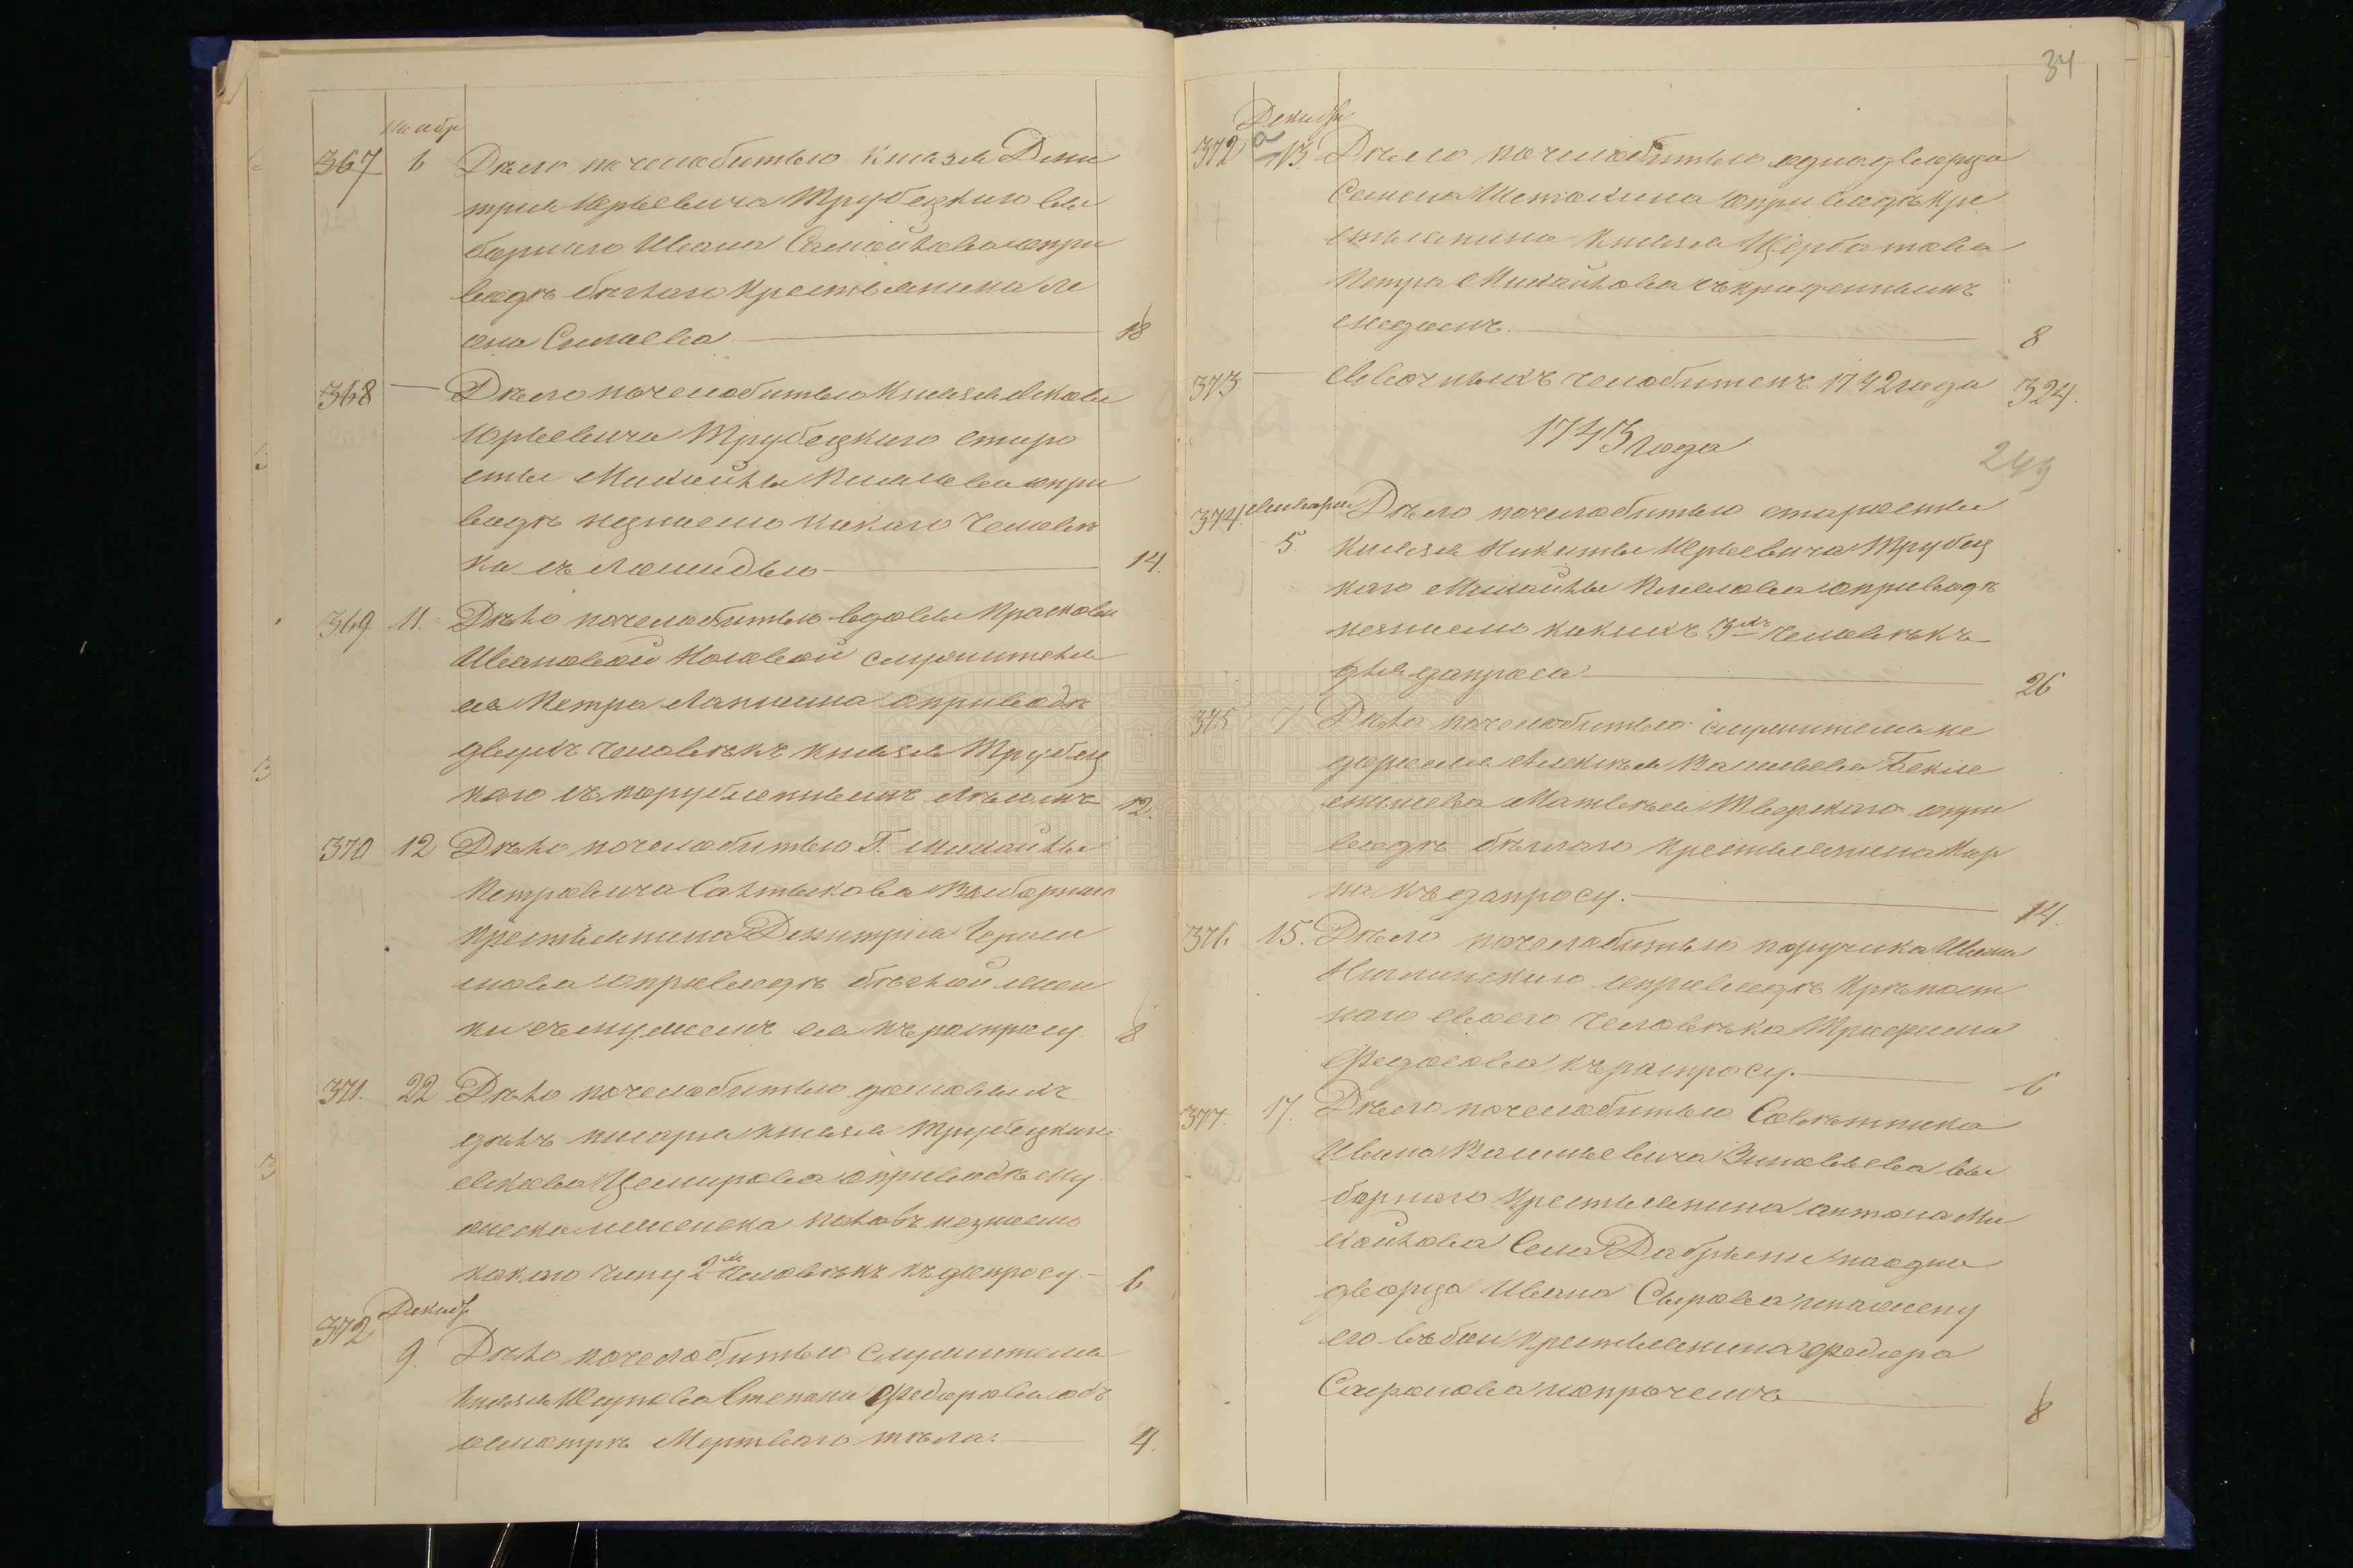 Ноябр
367 6 Дѣло почелобитью Князя Дми
трия Юрьевича Трубецкого вы
борнаго Ивана Самойлова оприводѣ
бѣглаго крестьянина Ле
она Силаева 18
368 — Дѣло почелобитью Князя Якова
Юрьевича Трубецкаго старо
сты Михайлы Климова опри
водѣ незнаемо какаго человѣ
ка съ Лошадью 14.
369 11. Дѣло почелобитью вдовы Прасковьи
Ивановой служителя
ея Петра Лапшина оприводѣ
двухъ человѣкъ князя Трубец
каго съ порубленнымъ лѣсомъ 12.
370 12 Дѣло почелобитью Г. Михайлы
Петровича Салтыкова Выборнаго
крестьянина Димитрия Гераси
мова оприводѣ бѣглой жен
ки съ мужемъ ея къ распросу. 8
371. 22 Дѣло почелобитью домовыхъ
дѣлъ писаря князя Трубецкаго
Якова оприводѣ му
жеска незнаемо
какаго чину 2хъ человѣкъ къ допросу.— 6
Декабр.
372 9. Дѣло почелобитью Служителя
Князя Степана Федорова объ
осмотрѣ Мертваго тѣла. 4.
34
Декабр
372 а 13. Дѣло почелобитью однодворца
Семена оприводѣ Кре
стьянина князя Щербатова
Петра Михайлова съ краденнымъ
медомъ. 8
373 — Явочныхъ челобитенъ 1742 года 324.
1743 года
249
374. Января Дѣло почелобитью старосты
5. Князя Никиты Юрьевича Трубец
каго Михайлы Климова оприводѣ
незнаемо какихъ 3хъ человѣкъ
для допроса 26
375 7 Дѣло почелобитью служителя
Алексѣя Васильева Бекле
мишева Матвѣя Тверскаго опри
водѣ бѣглаго крестьянина Кар
па къ допросу. 14.
376 15. Дѣло почелобитью поручика Ивана
оприводѣ крѣпост
наго своего человѣка Трофима
Федосова къ распросу. 6
377. 17. Дѣло почелобитью Совѣтника
Ивана Васильевича Зиновьева вы
борнаго крестьянина антона Ми
хайлова Села на одно
дворца Ивана Сырова и на жену
его въ бои крестьянина Федора
Сафонова и опрочемъ 8